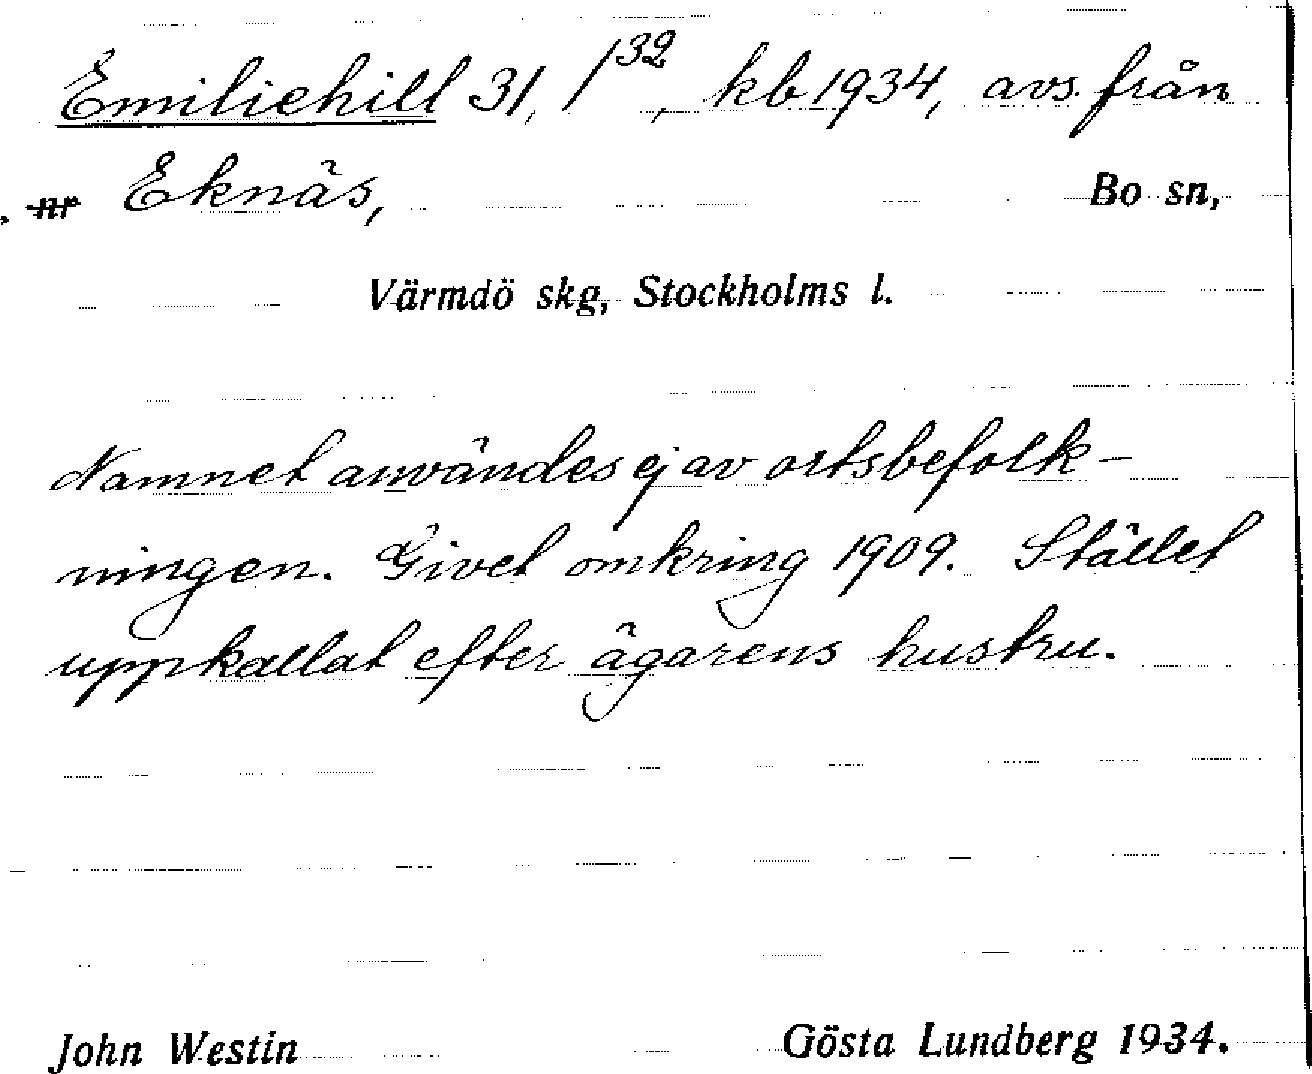 Emiliehill 31, /32, kb 1934, avs. från
. nr Eknäs, Bo sn,
Värmdö skg, Stockholms l.
Namnet användes ej av ortsbefolk-
ningen. Givet omkring 1909. Stället
uppkallat efter ägarens hustru.
John Westin Gösta Lundberg 1934.